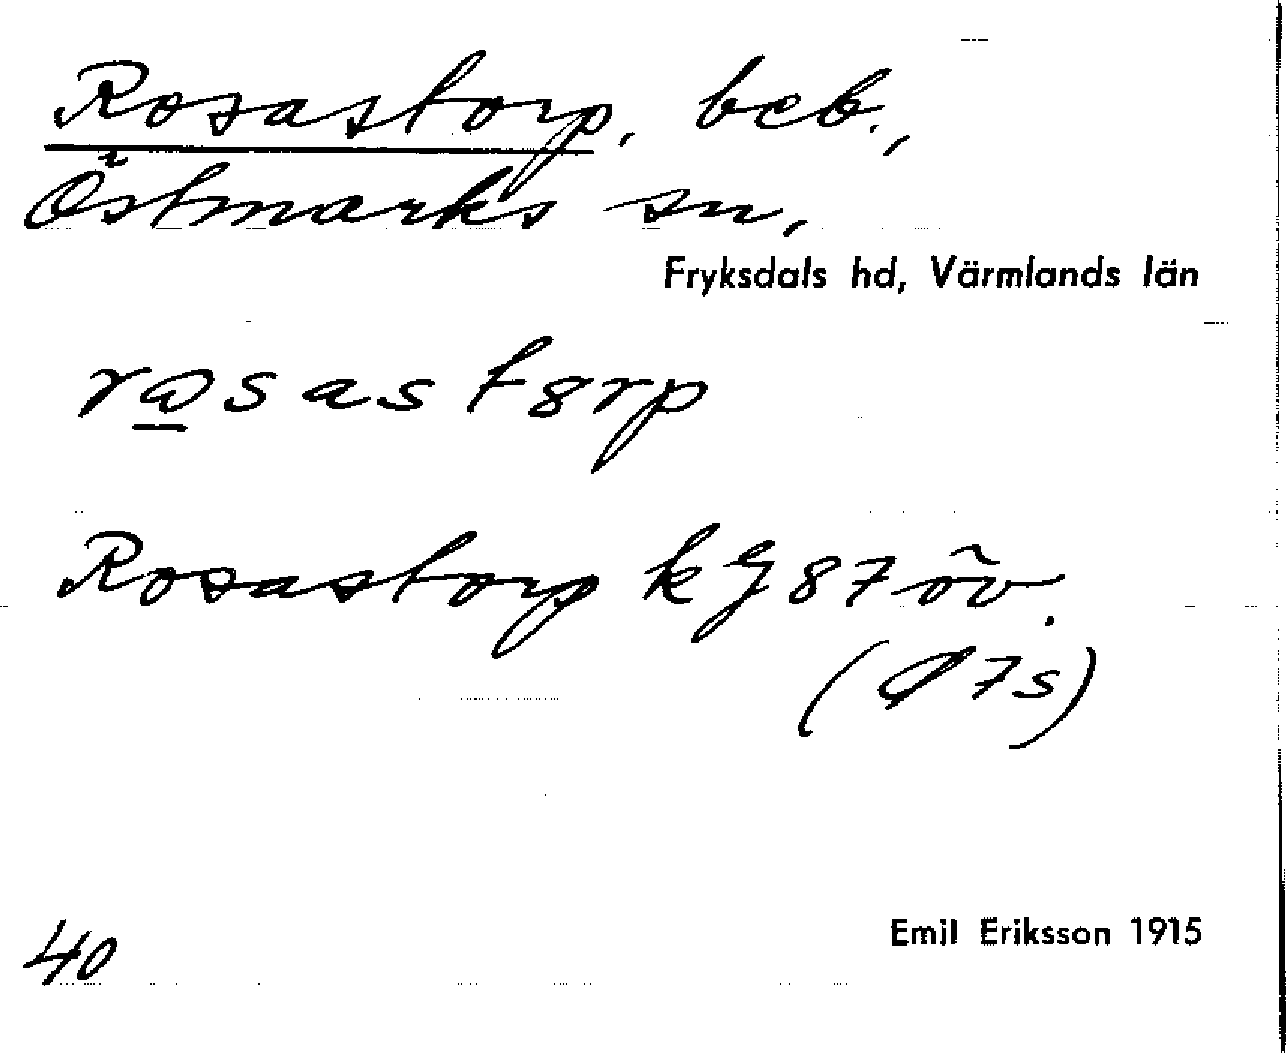 Rosastorp, beb.,
Östmarks sn,
Fryksdals hd, Värmlands län
Rosastorp kJ87öv.
40
Emil Eriksson 1915